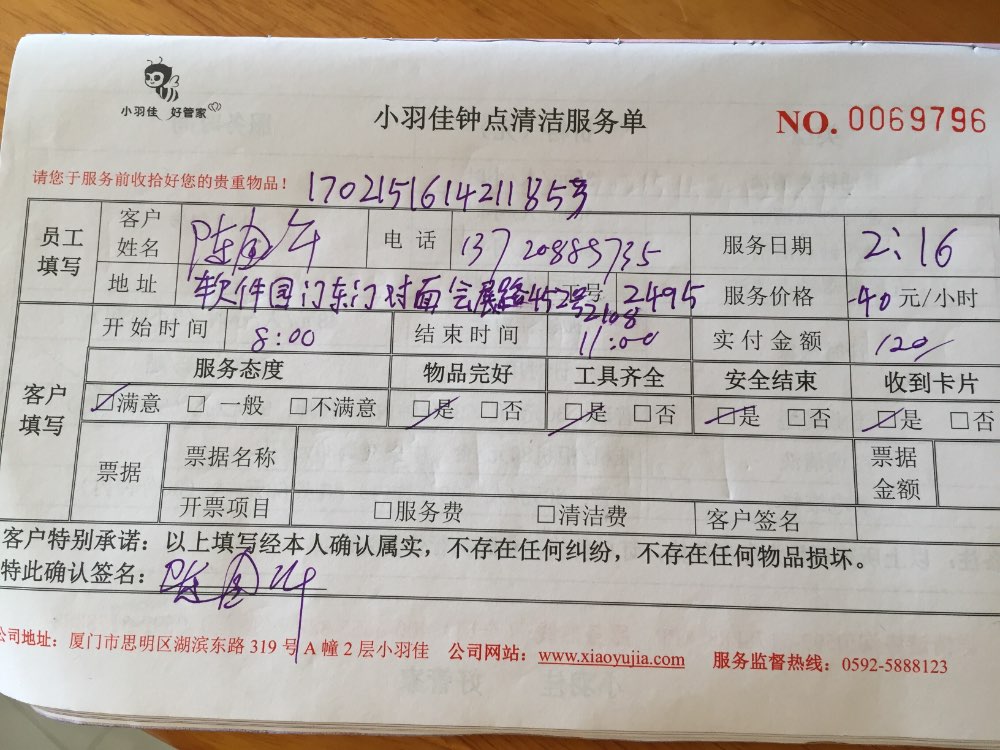 小羽佳 好管家
小羽佳钟点清洁服务单
NO. 0069796
请您于服务前收拾好您的贵重物品！ 170215161421185号
员工填写 客户姓名 陈 电话 服务日期 2:16
地址 软件园 东门对面会展路452号2108 工号 2495 服务价格 40 元/小时
客户填写 开始时间 8:00 结束时间 11:00 实付金额 120/
服务态度 物品完好 工具齐全 安全结束 收到卡片
☑满意 □一般 □不满意 ☑是 □否 ☑是 □否 ☑是 □否 ☑是 □否
票据 票据名称 票据金额
开票项目 □服务费 □清洁费 客户签名
客户特别承诺：以上填写经本人确认属实，不存在任何纠纷，不存在任何物品损坏。
特此确认签名：陈
公司地址：厦门市思明区湖滨东路 319 号 A 幢 2 层小羽佳 公司网站：www.xiaoyujia.com 服务监督热线：0592-5888123